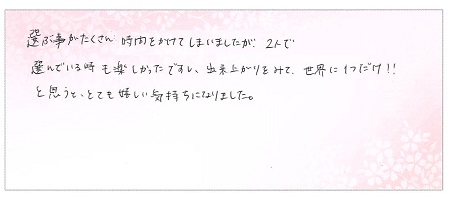 選ぶ事がたくさん 時間をかけてしまいましたが、2人で
選んでいる時も楽しかったですし、出来上がりをみて、世界に1つだけ!!
と思うと、とても嬉しい気持ちになりました。